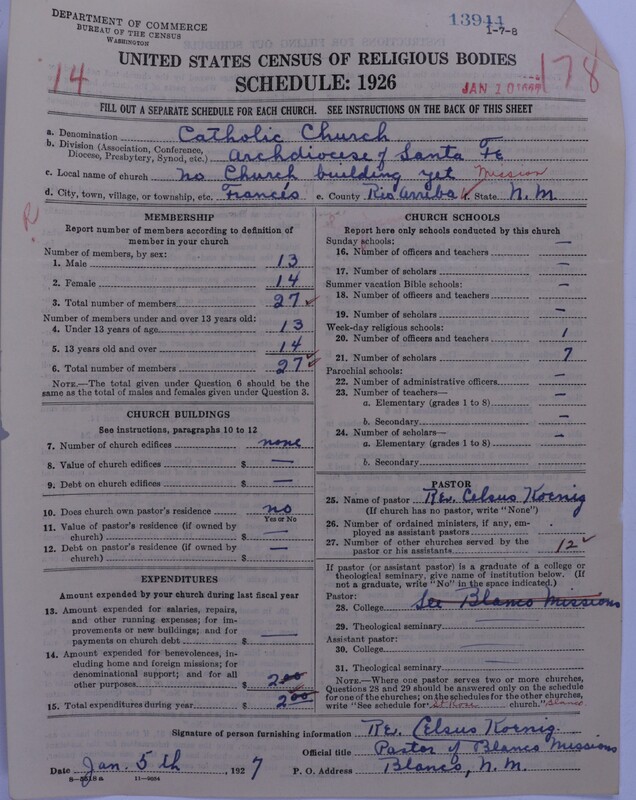 DEPARTMENT OF COMMERCE
BUREAU OF THE CENSUS
WASHINGTON
13944
1-7-8
UNITED STATES CENSUS OF RELIGIOUS BODIES
SCHEDULE: 1926
14
JAN 10
178
FILL OUT A SEPARATE SCHEDULE FOR EACH CHURCH. SEE INSTRUCTIONS ON THE BACK OF THIS SHEET
a. Denomination Catholic Church
b. Division (Association, Conference, Diocese, Presbytery, Synod, etc.) Archdiocese of Santa Fe
c. Local name of church no Church building yet Mission
d. City, town, village, or township, etc. Francés e. County Rio Arriba f. State N. M.
R
MEMBERSHIP
Report number of members according to definition of
member in your church
Number of members, by sex:
1. Male 13
2. Female 14
3. Total number of members 27
Number of members under and over 13 years old:
4. Under 13 years of age 13
5. 13 years old and over 14
6. Total number of members 27
NOTE.—The total given under Question 6 should be the
same as the total of males and females given under Question 3.
CHURCH BUILDINGS
See instructions, paragraphs 10 to 12
7. Number of church edifices none
8. Value of church edifices $ —
9. Debt on church edifices $ —
10. Does church own pastor's residence no
Yes or No
11. Value of pastor's residence (if owned by
church) $ —
12. Debt on pastor's residence (if owned by
church) $ —
EXPENDITURES
Amount expended by your church during last fiscal year
13. Amount expended for salaries, repairs,
and other running expenses; for im-
provements or new buildings; and for
payments on church debt $ —
14. Amount expended for benevolences, in-
cluding home and foreign missions; for
denominational support; and for all
other purposes $ 2.00
15. Total expenditures during year $ 2.00
CHURCH SCHOOLS
Report here only schools conducted by this church
Sunday schools:
16. Number of officers and teachers —
17. Number of scholars —
Summer vacation Bible schools: —
18. Number of officers and teachers
19. Number of scholars —
Week-day religious schools:
20. Number of officers and teachers 1
21. Number of scholars 7
Parochial schools:
22. Number of administrative officers —
23. Number of teachers—
a. Elementary (grades 1 to 8) —
b. Secondary —
24. Number of scholars—
a. Elementary (grades 1 to 8) —
b. Secondary
PASTOR
25. Name of pastor Rev. Celsus Koenig
(If church has no pastor, write "None")
26. Number of ordained ministers, if any, em-
ployed as assistant pastors
27. Number of other churches served by the
pastor or his assistants 12
If pastor (or assistant pastor) is a graduate of a college or
theological seminary, give name of institution below. (If
not a graduate, write "No" in the space indicated.)
Pastor:
28. College See Blanco Missions
29. Theological seminary
Assistant pastor:
30. College
31. Theological seminary
NOTE.—Where one pastor serves two or more churches,
Questions 28 and 29 should be answered only on the schedule
for one of the churches; on the schedules for the other churches,
write "See schedule for St Rose church." Blanco
Signature of person furnishing information Rev. Celsus Koenig.
Official title Pastor of Blanco Missions
Date Jan. 5th, 1927 P. O. Address Blanco, N. M.
8-5518a 11-9034